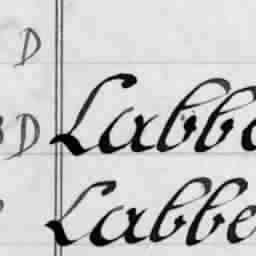 D
BD Labbe
Labbe